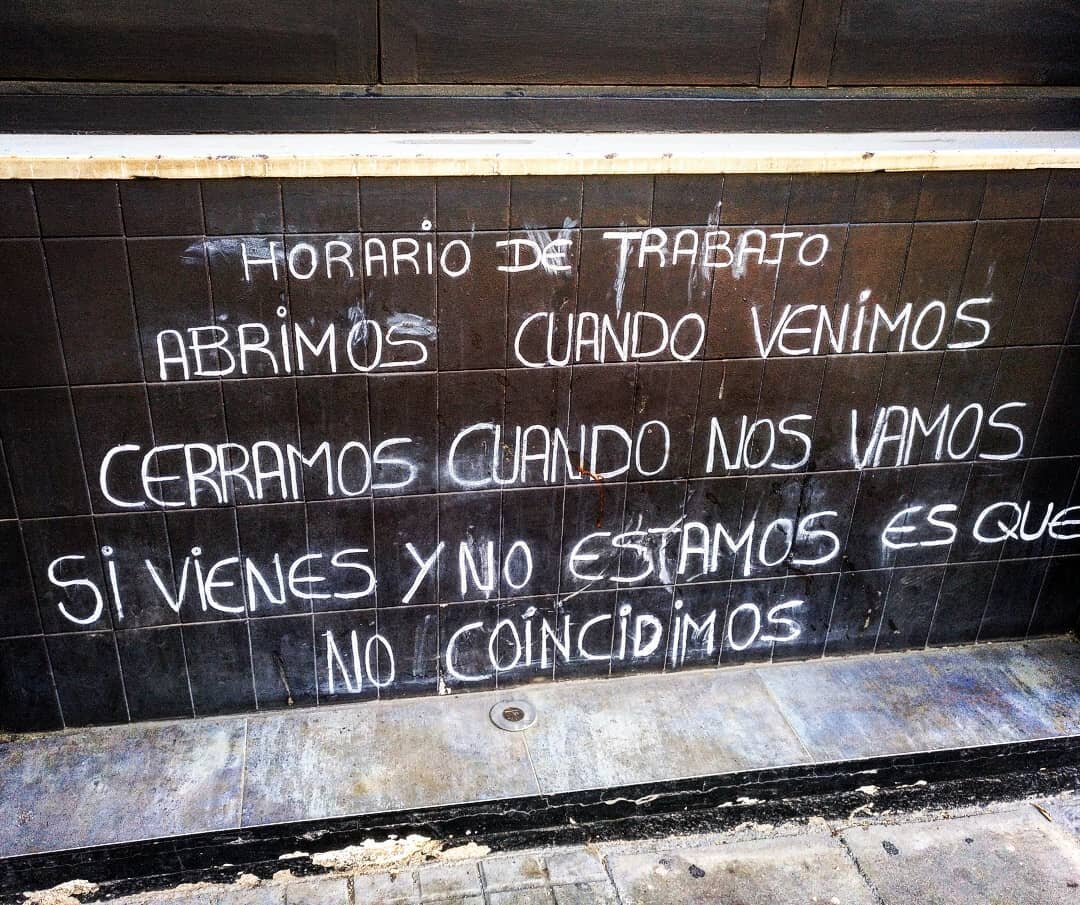 HORARIO DE TRABAJO
ABRIMOS CUANDO VENIMOS
CERRAMOS CUANDO NOS VAMOS
SI VIENES Y NO ESTAMOS ES QUE
NO COINCIDIMOS